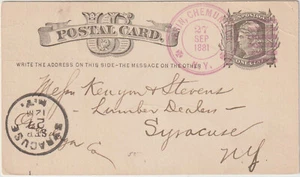 POSTAL CARD.
WRITE THE ADDRESS ON THIS SIDE - THE MESSAGE ON THE OTHER
CHEMUNG
27
SEP
1881
N.Y.
Messrs Kenyon & Stevens
Lumber Dealers
Syracuse
NY
SYRACUSE
SEP
27
N.Y.